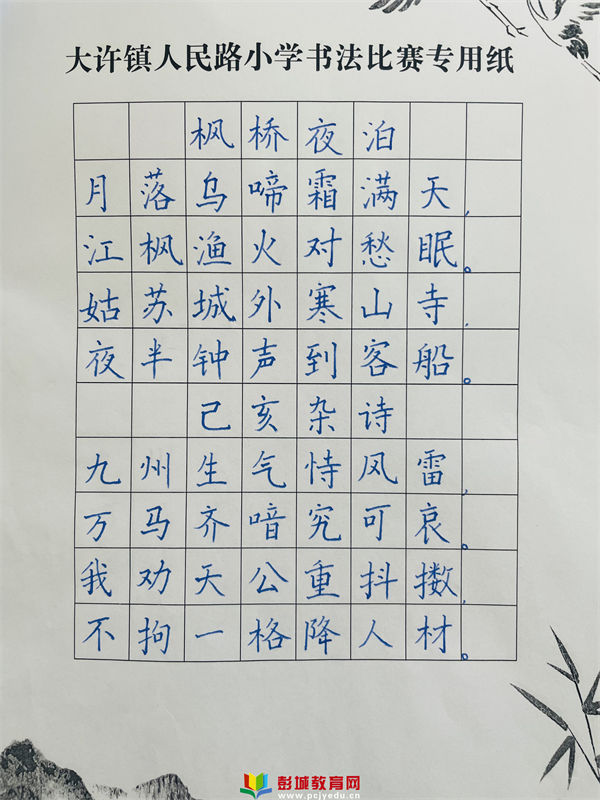 大许镇人民路小学书法比赛专用纸
枫桥夜泊
月落乌啼霜满天，
江枫渔火对愁眠。
姑苏城外寒山寺，
夜半钟声到客船。
己亥杂诗
九州生气恃风雷，
万马齐喑究可哀。
我劝天公重抖擞，
不拘一格降人材。
彭城教育网
www.pcjyedu.cn